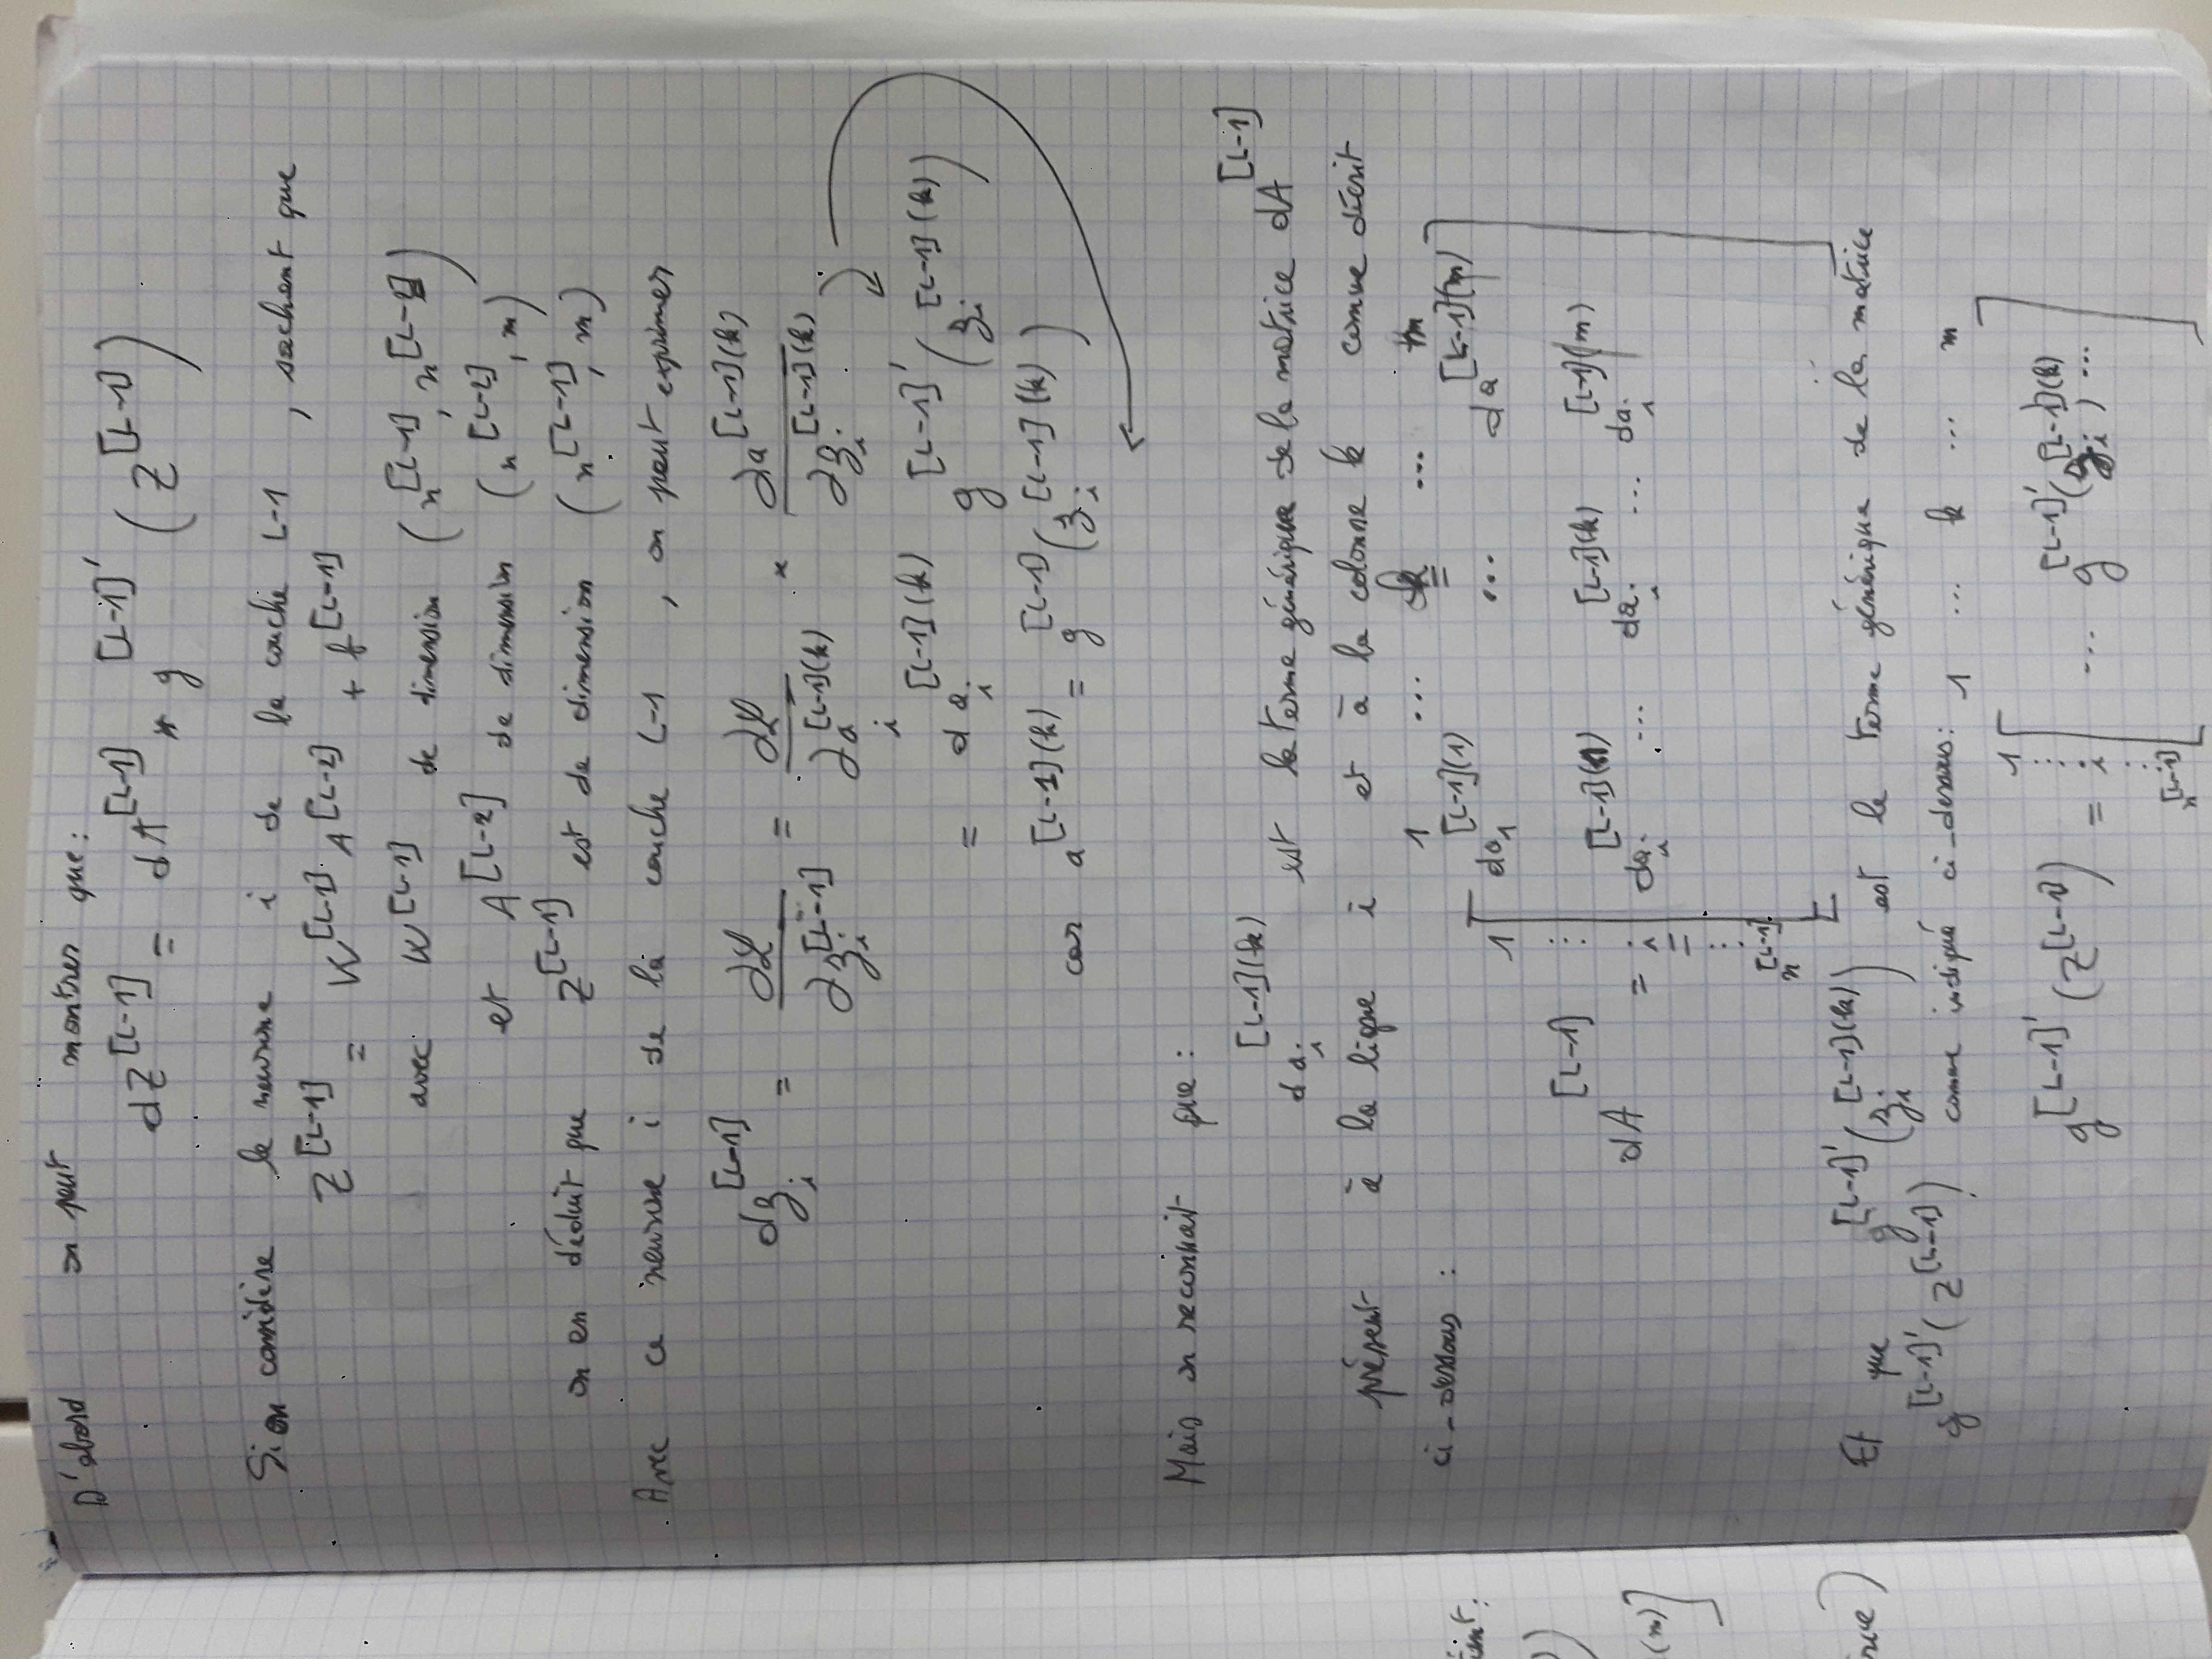 D'abord on peut montrer que :
dZ^[L-1] = dA^[L-1] * g^[L-1]' (Z^[L-1])
Si on considère le neurone i de la couche L-1, sachant que
Z^[L-1] = W^[L-1] A^[L-2] + b^[L-1]
avec W^[L-1] de dimension (n^[L-1], n^[L-2])
et A^[L-2] de dimension (n^[L-2], m)
on en déduit que Z^[L-1] est de dimension (n^[L-1], m)
Avec ce neurone i de la couche L-1, on peut exprimer
dz_i^[L-1] = ∂L/∂z_i^[L-1] = ∂L/∂a_i^[L-1](k) × ∂a^[L-1](k)/∂z_i^[L-1](k)
= da_i^[L-1](k) g^[L-1]' (z_i^[L-1](k))
car a^[L-1](k) = g^[L-1] (z_i^[L-1](k))
Mais on reconnait que :
da_i^[L-1](k) est le terme générique de la matrice dA^[L-1]
présent à la ligne i et à la colonne k comme décrit
ci-dessous :
1 ... k ... m
1 [ da_1^[L-1](1) ... da^[L-1](m) ]
⋮
dA^[L-1] = i da_i^[L-1](1) ... da_i^[L-1](k) ... da_i^[L-1](m)
⋮
n^[L-1]
Et que g^[L-1]' (z_i^[L-1](k)) est le terme générique de la matrice
g^[L-1]' (Z^[L-1]) comme indiqué ci-dessous : 1 ... k ... m
1
⋮
g^[L-1]' (Z^[L-1]) = i [ ... g^[L-1]' (z_i^[L-1](k)) ... ]
⋮
n^[L-1]
(m)]